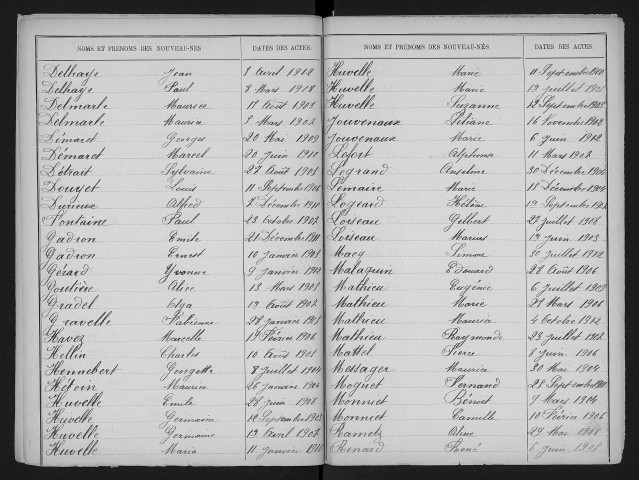 NOMS ET PRÉNOMS DES NOUVEAU-NÉS DATES DES ACTES.
Delhaye Jean 8 Avril 1912
Delhaye Paul 8 Mars 1908
Delmarle Maurice 11 Août 1903
Delmarle Maurice 8 Mars 1902
Démaret Georges 20 Mai 1909
Démaret Marcel 20 Juin 1911
Détrait Sylvaine 27 Août 1905
Douyet Louis 11 Septembre 1906
Durieux Alfred 7 Décembre 1910
Fontaine Paul 23 Octobre 1907
Gadron Emile 21 Décembre 1910
Gadron Ernest 10 Janvier 1905
Gérard Yvonne 9 Janvier 1902
Goutière Alice 13 Mars 1905
Gradel Olga 13 Août 1907
Gravelle Fabienne 28 Janvier 1905
Havez Marcelle 19 Février 1906
Hellin Charles 10 Août 1905
Hennebert Georgette 8 Juillet 1904
Hétoin Maurice 26 Janvier 1904
Huvelle Emile 28 Juin 1908
Huvelle Germaine 12 Septembre 1905
Huvelle Germaine 13 Avril 1907
Huvelle Maria 11 Janvier 1910
NOMS ET PRÉNOMS DES NOUVEAU-NÉS DATES DES ACTES.
Huvelle Marie 11 Septembre 1910
Huvelle Marie 13 Juillet 1905
Huvelle Suzanne 12 Septembre 1903
Jouvenaux Liliane 16 Novembre 1912
Jouvenaux Marie 6 Juin 1902
Lefort Alphonse 11 Mars 1902
Legrand Anselme 30 Décembre 1902
Lemaire Marie 15 Décembre 1904
Logeard Hélène 19 Septembre 1907
Loiseau Gilbert 29 Juillet 1908
Loiseau Marius 13 Juin 1903
Macq Simon 30 Juillet 1912
Malaquin Edouard 28 Août 1906
Mathieu Eugénie 6 Juillet 1909
Mathieu Marie 28 Mars 1906
Mathieu Maurice 4 Octobre 1912
Mathieu Raymonde 23 Juillet 1902
Mattot Pierre 8 Juin 1906
Messager Maurice 30 Mai 1904
Moguet Fernand 28 Septembre 1910
Monniet Benoît 9 Mars 1904
Monniet Camille 10 Février 1906
Rametz Aline 29 Mai 1908
Renard René 6 Juin 1905